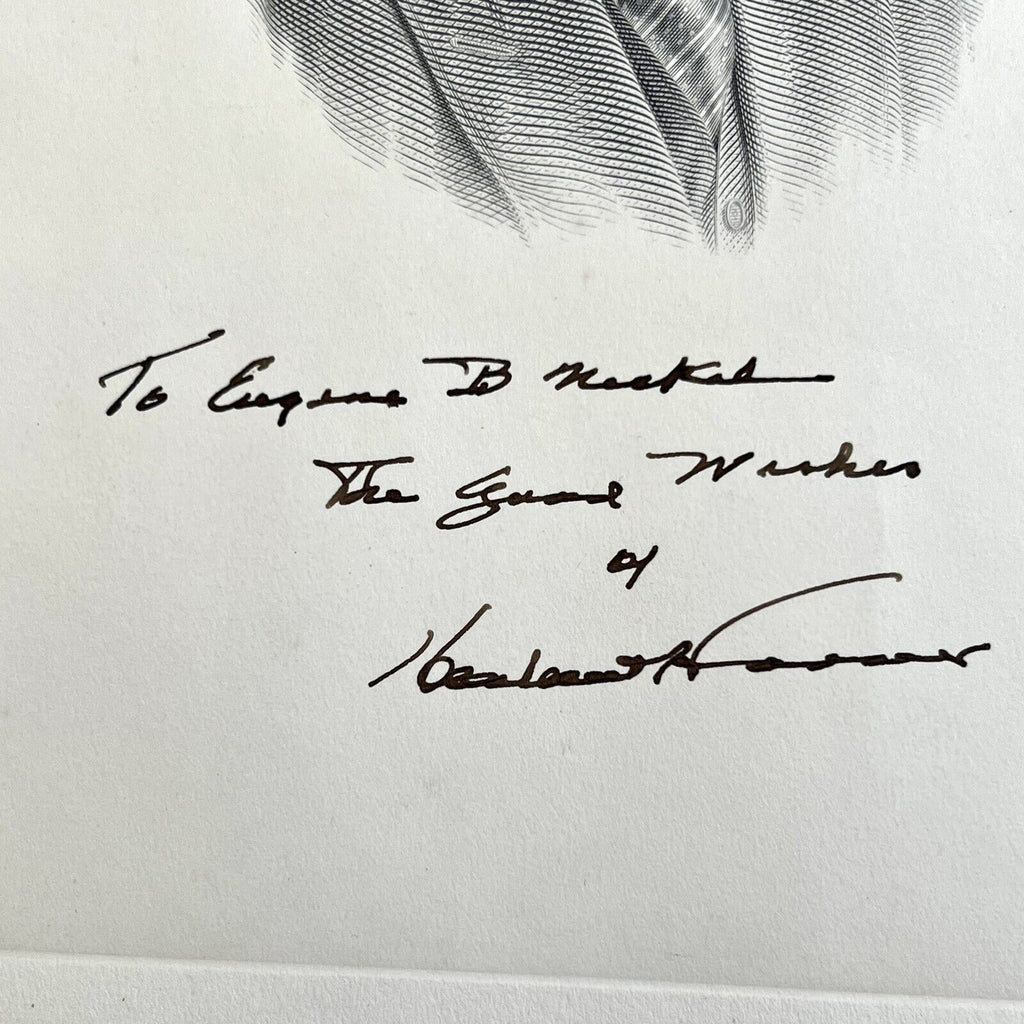 To Eugene B
The Good Wishes
of
Herbert Hoover